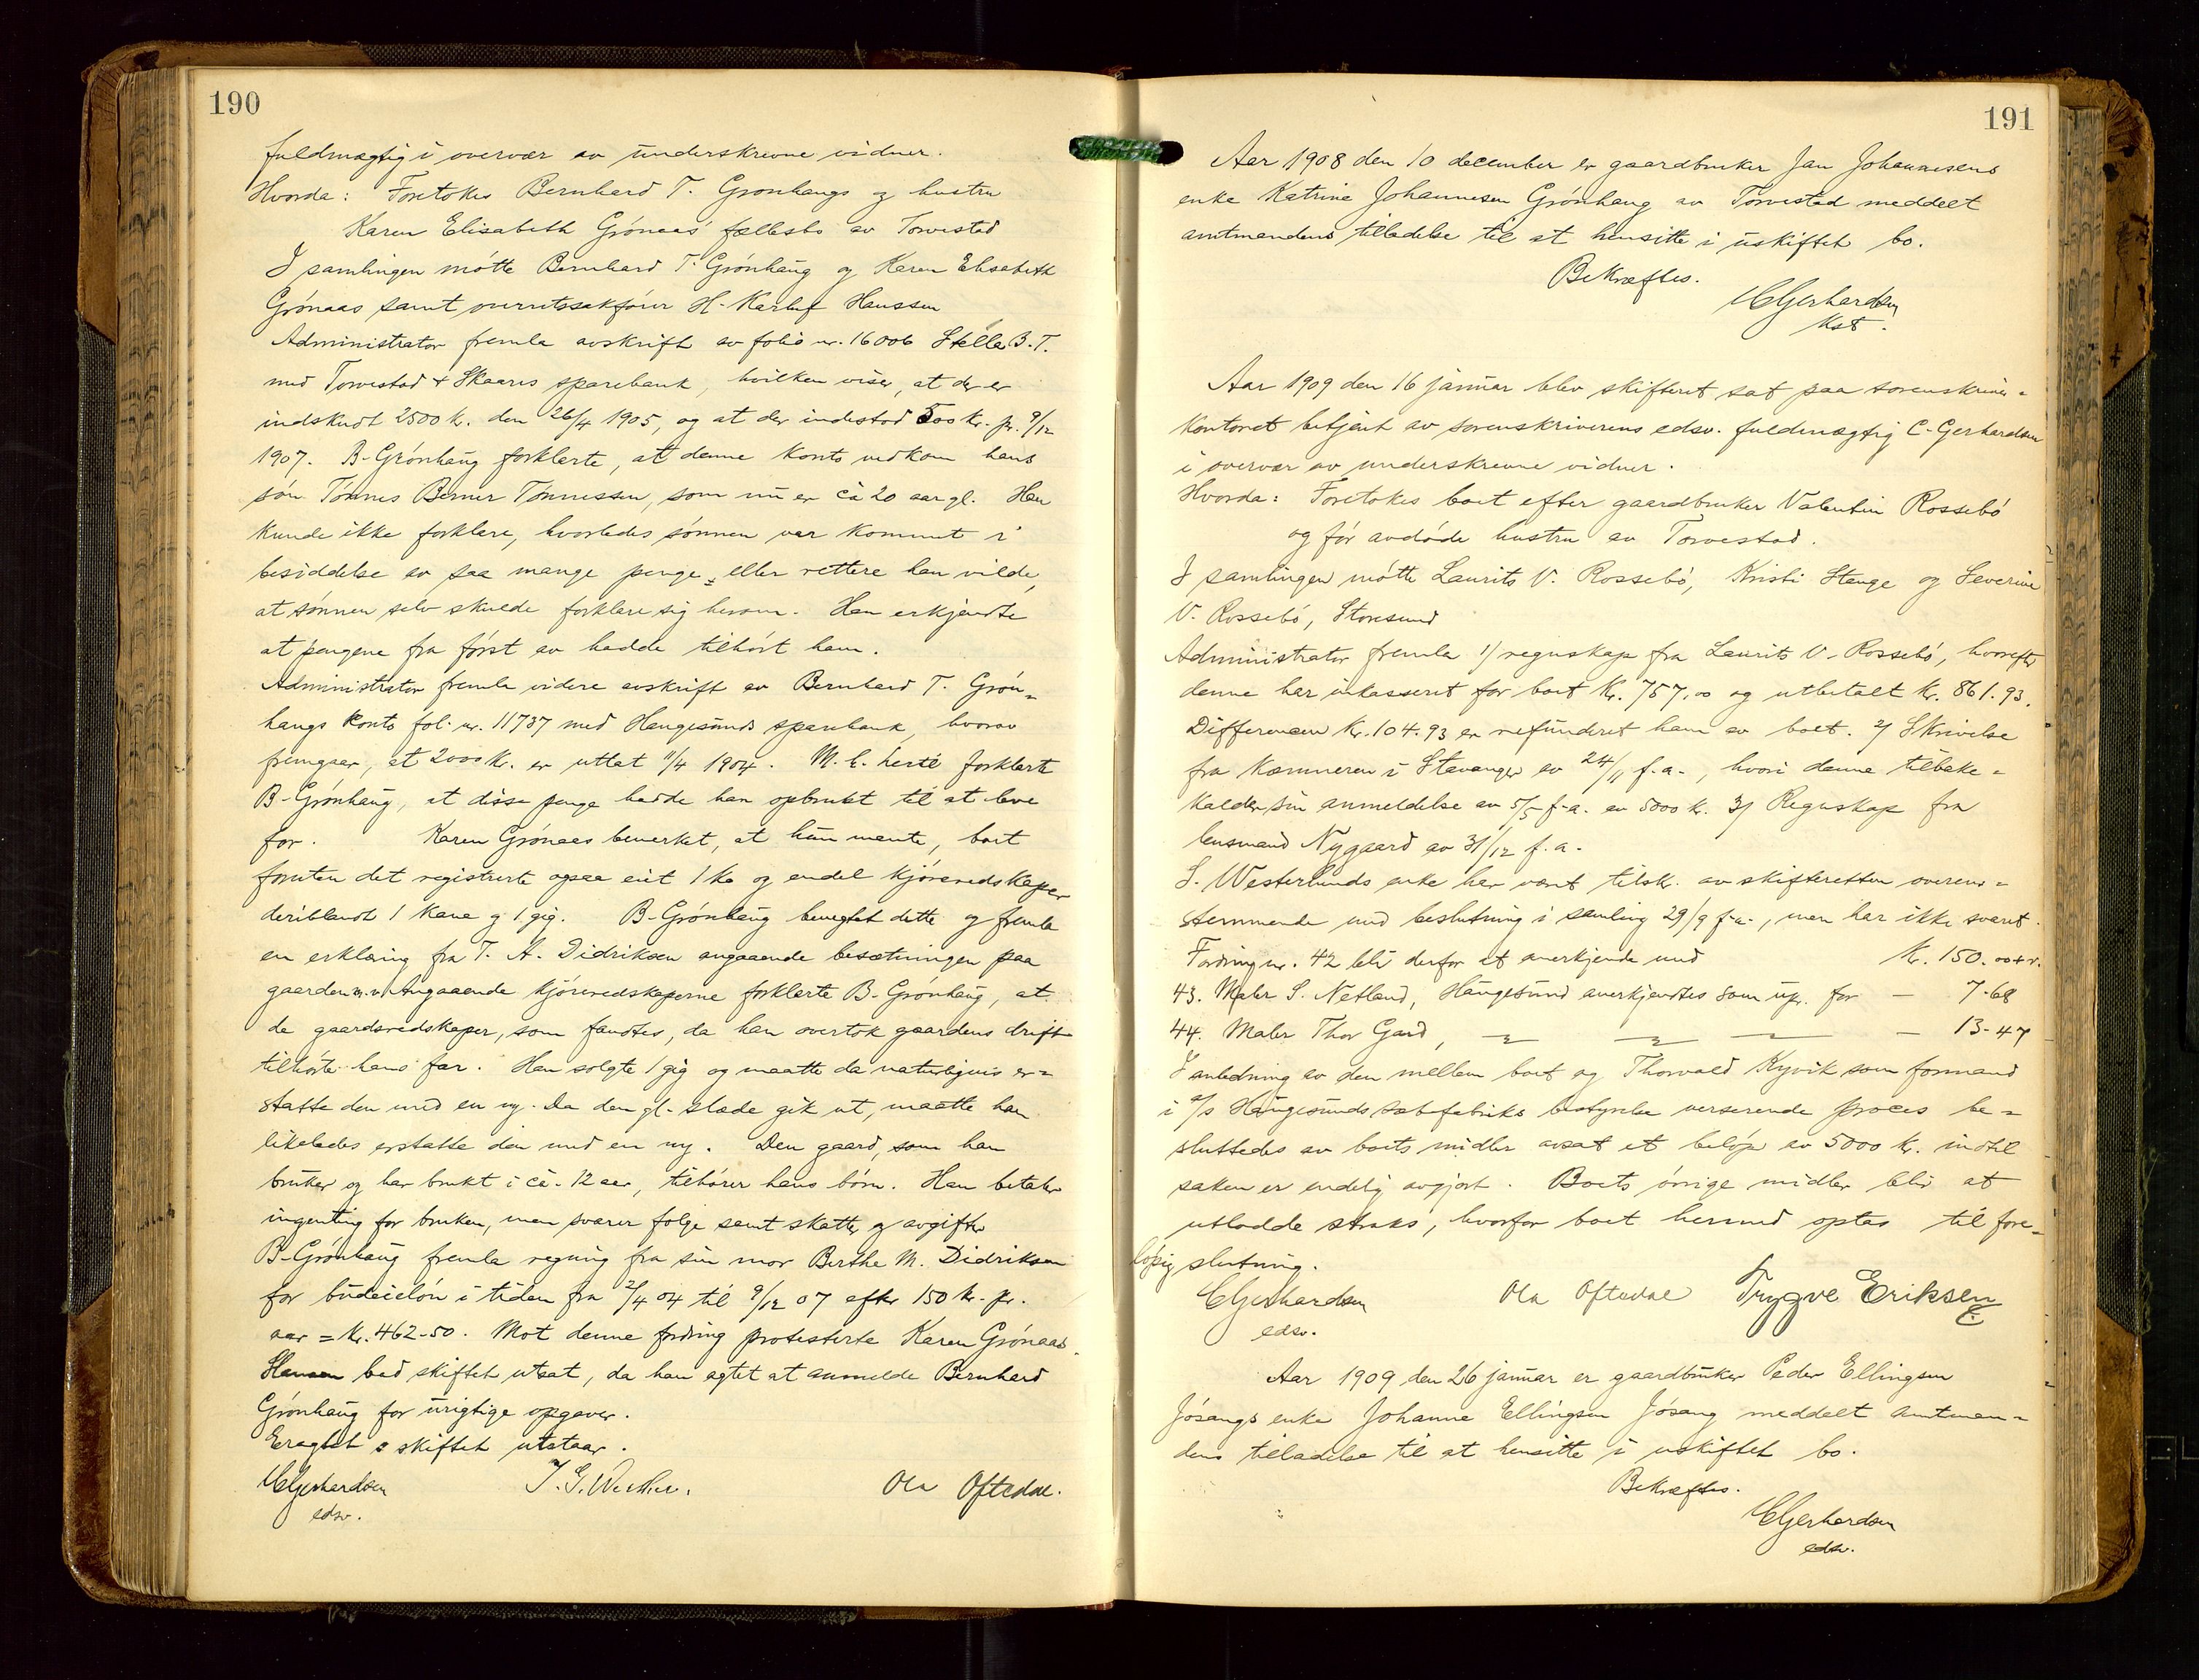 190
fuldmægtig i overvær av underskrevne vidner.
Hvorda: Foretokes Bernhard T. Grønhaugs og hustru
Karen Elisabeth Grønaas' fællesbo av Torvestad
I samlingen møtte Bernhard T. Grønhaug og Karen Elisabeth
Grønaas samt overretssakfører H. Karluf Hanssen
Administrator fremla avskrift av folio nr. 16006 B. T.
med Torvestad & Skaares sparebank, hvilken viser, at der er
indskudt 2500 kr. den 26/4 1905, og at der indestod 500 kr. pr. 9/12
1907. B. Grønhaug forklarte, at denne konto vedkom hans
søn Tønnes Berner Tønnessen, som nu er ca 20 aar gl. Han
kunde ikke forklare, hvorledes sønnen var kommet i
besiddelse av saa mange penge, eller rettere han vilde,
at sønnen selv skulde forklare sig herom. Han erkjendte
at pengene fra først av hadde tilhørt ham.
Administrator fremla videre avskrift av Bernhard T. Grøn=
haugs konto fol. nr. 11737 med Haugesunds sparebank, hvorav
fremgaar, at 2000 kr. er uttat 11/4 1904. M. h. hertil forklarte
B. Grønhaug, at disse penge hadde han opbrukt til at leve
for. Karen Grønaas bemerket, at hun mente, boet
foruten det registrerte ogsaa eiet 1 ko og endel kjøreredskaper
deriblandt 1 kane og 1 gig. B. Grønhaug benegtet dette og fremla
en erklæring fra T. A. Didriksen angaaende besætningen paa
gaarden m. v. Angaaende kjøreredskaperne forklarte B. Grønhaug, at
de gaardsredskaper, som fandtes, da han overtok gaardens drift
tilhørte hans far. Han solgte 1 gig og maatte da naturligvis er=
statte den med en ny. Da den gl. slæde gik ut, maatte han
likeledes erstatte den med en ny. Den gaard, som han
bruker og har brukt i ca. 12 aar, tilhører hans børn. Han betaler
ingenting for bruken, men svarer følge samt skatter og avgifter
B. Grønhaug fremla regning fra sin mor Berthe M. Didriksen
for budeieløn i tiden fra 2/4 04 til 9/12 07 efter 150 kr. pr.
aar = kr. 462.50. Mot denne fordring protesterte Karen Grønaas.
Hansen bad skiftet utsat, da han agtet at anmelde Bernhard
Grønhaug for urigtige opgaver.
Eragtet skiftet utstaar.
CGerhardsen
edsv.
Ola Oftedal.
191
Aar 1908 den 10 december er gaardbruker Jan Johannesens
enke Katrine Johannesen Grønhaug av Torvestad meddelt
amtmandens tilladelse til at hensitte i uskiftet bo.
Bekræftes.
CGerhardsen
kst.
Aar 1909 den 16 januar blev skifteret sat paa sorenskriver=
kontoret betjent av sorenskriverens edsv. fuldmægtig C. Gerhardsen
i overvær av underskrevne vidner.
Hvorda: Foretokes boet efter gaardbruker Valentin Rossebø
og før avdøde hustru av Torvestad.
I samlingen møtte Laurits V. Rossebø, Kristi Stange og Severine
V. Rossebø, Storesund
Administrator fremla 1/ regnskap fra Laurits V. Rossebø, hvorefter
denne har inkasseret for boet kr. 757.00 og utbetalt kr. 861.93.
Differencen kr. 104.93 er refunderet ham av boet. 2/ Skrivelse
fra kæmneren i Stavanger av 24/11 f. a., hvori denne tilbake=
kalder sin anmeldelse av 5/5 f. a. av 5000 kr. 3/ Regnskap fra
lensmand Nygaard av 31/12 f. a.
S. Westerlunds enke har været tilskr. av skifteretten overens=
stemmende med beslutning i samling 29/9 f. a., men har ikke svaret.
Fordring nr. 42 blir derfor at anerkjende med kr. 150.00 + r.
43. Maler S. Netland, Haugesund anerkjendtes som upr. for — 7.68
44. Maler Thor Gard, — 13.47
I anledning av den mellem boet og Thorvald Kyvik som formand
i a/s Haugesunds sæbefabriks bestyrelse verserende proces be=
sluttedes av boets midler avsat et beløp av 5000 kr. indtil
saken er endelig avgjort. Boets øvrige midler blir at
utlodde straks, hvorfor boet hermed optas til fore=
løpig slutning.
CGerhardsen
edsv.
Ola Oftedal Trygve Eriksen
Aar 1909 den 26 januar er gaardbruker Peder Ellingsen
Jøsangs enke Johanne Ellingsen Jøsang meddelt amtman=
dens tilladelse til at hensitte i uskiftet bo.
Bekræftes.
CGerhardsen
edsv.